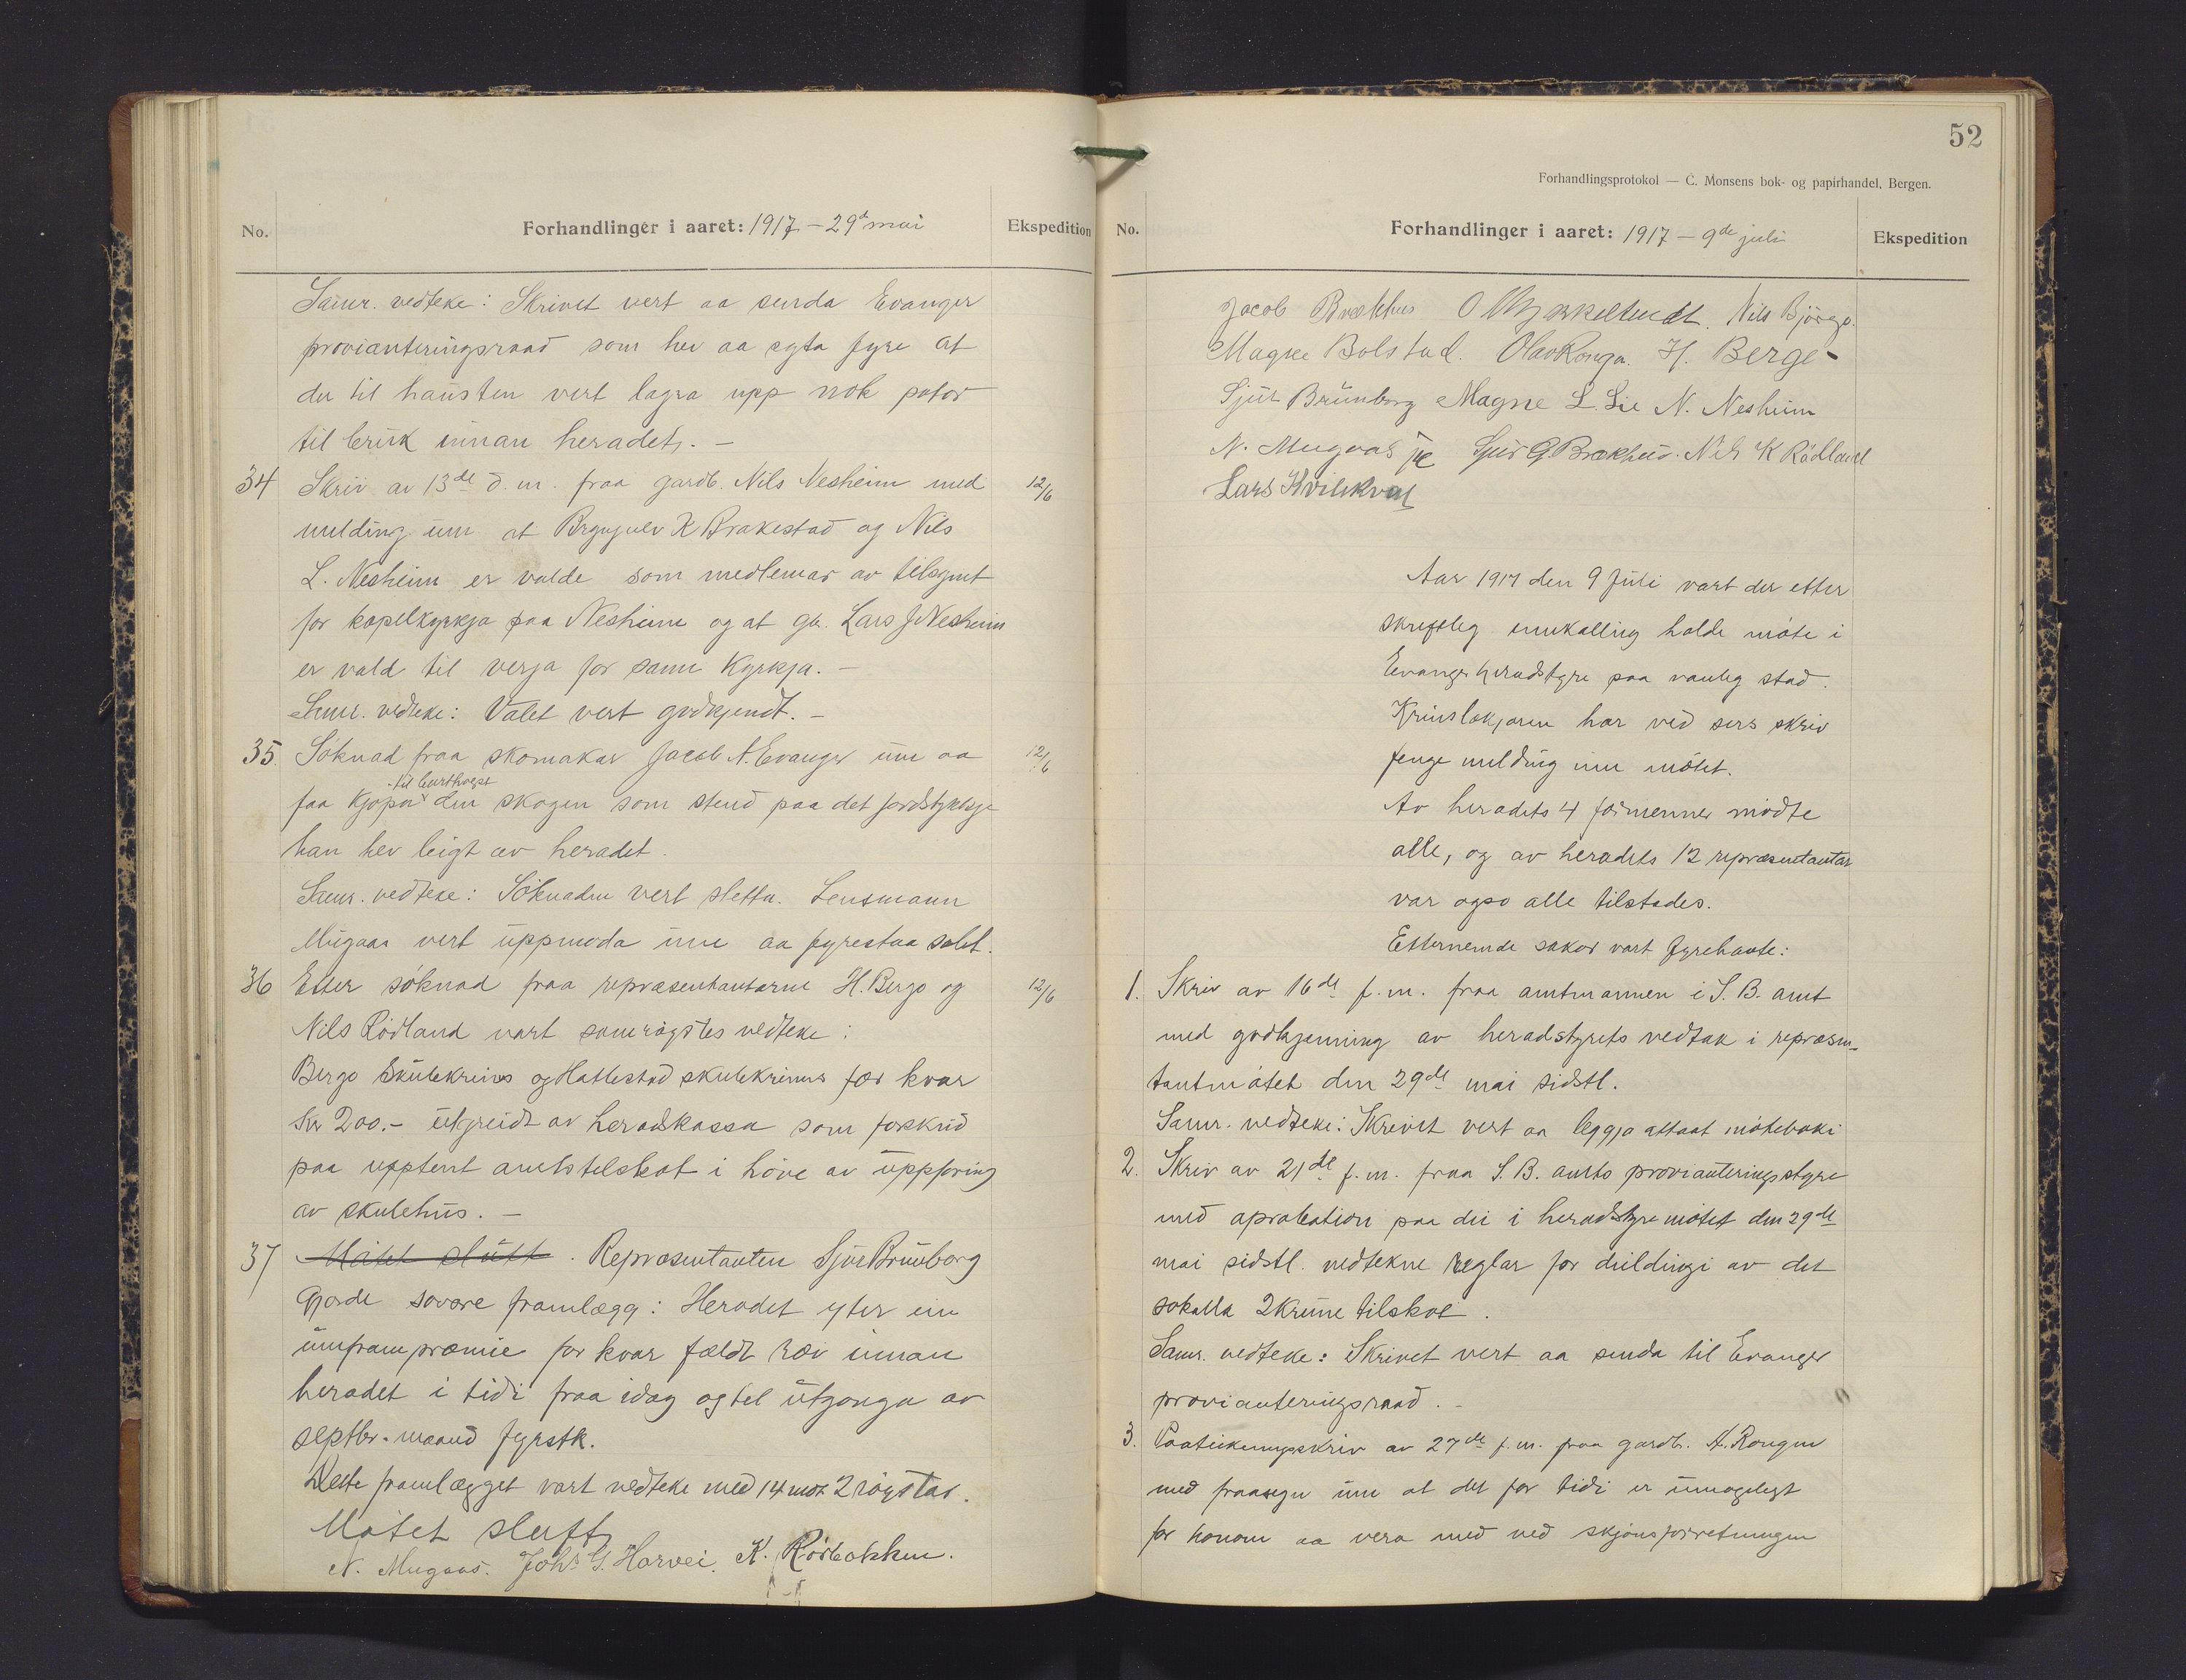 No.
Forhandlinger i aaret: 1917 – 29de mai
Ekspedition
Samr. vedteke: Skrivet vert aa senda Evanger
provianteringsraad som hev aa syta fyre at
der til hausten vert lagra upp nok potor
til bruk innan heradet. –
34 Skriv av 13de d. m. fraa gardb. Nils Nesheim med 12/6
melding um at Brynjulv K Brakestad og Nils
L. Nesheim er valde som medlemar av tilsynet
for kapelkyrkja paa Nesheim og at gb. Lars J Nesheim
er vald til verja for same Kyrkja. –
Samr. vedteke: Valet vert godkjendt. –
35. Söknad fraa skomakar Jacob A. Evanger um aa 12/6
til burthogst
faa kjøpa den skogen som stend paa det jordstykkje
han hev leigt av heradet.
Samr. vedteke: Söknaden vert sletta. Lensmann
Mugaas vert uppmoda um aa fyrestaa salet.
36 Etter söknad fraa repræsentantarne H. Berge og 12/6
Nils Rödland vart samröystes vedteke:
Berge Skulekrins og Hallestad skulekrins fær kvar
Kr 200.- utgreidt av heradskassa som forskud
paa upptent amtstilskot i höve av uppföring
av skulehus. –
37 Mötet slutt. Repræsentanten Sjur Brunborg
gjorde sovore framlægg: Heradet yter ein
umframpræmie for kvar fældt ræv innan
heradet i tidi fraa idag og til utgonga av
septbr. maand fyrstk.
Dette framlægget vart vedteke med 14 mot 2 röystar.
Mötet slutt
N. Mugaas. Johs G. Horvei. K. Rörbakken.
52
Forhandlingsprotokol — C. Monsens bok- og papirhandel, Bergen.
No.
Forhandlinger i aaret: 1917 – 9de juli
Ekspedition
Jacob Brækhus Nils Björgo.
Magne Bolstad. Olav Ronga. H. Berge-
Sjur Brunborg Magne L. Lie N. Nesheim
N. Mugaas Sjur G. Brækhus. Nils K Rödland
Lars Kvilekval
Aar 1917 den 9 Juli vart der etter
skriftleg innkalling halde möte i
Evanger heradstyre paa vanleg stad.
Krinslækjaren har ved sers skriv
fenge melding um mötet.
Av heradets 4 formenner mödte
alle, og av heradets 12 repræsentantar
var ogso alle tilstades.
Etternemde sakor vart fyrehavte:
1. Skriv av 16de f. m. fraa amtmannen i S. B. amt
med godkjenning av heradstyrets vedtak i repræsen-
tantmötet den 29de mai sidstl.
Samr. vedteke: Skrivet vert aa leggja attaat möteboki
2. Skriv av 21de f. m. fraa S. B. amts provianteringsstyre
med aprobation paa dei i heradstyremötet den 29de
mai sidstl. vedtekne reglar for deildingi av det
sokalla 2 krune tilskot.
Samr. vedteke: Skrivet vert aa senda til Evanger
provianteringsraad. –
3. Paateikningsskriv av 27de f. m. fraa gardb. A. Rongen
med fraasegn um at det for tidi er umogelegt
for honom aa vera med ved skjönsforretningen